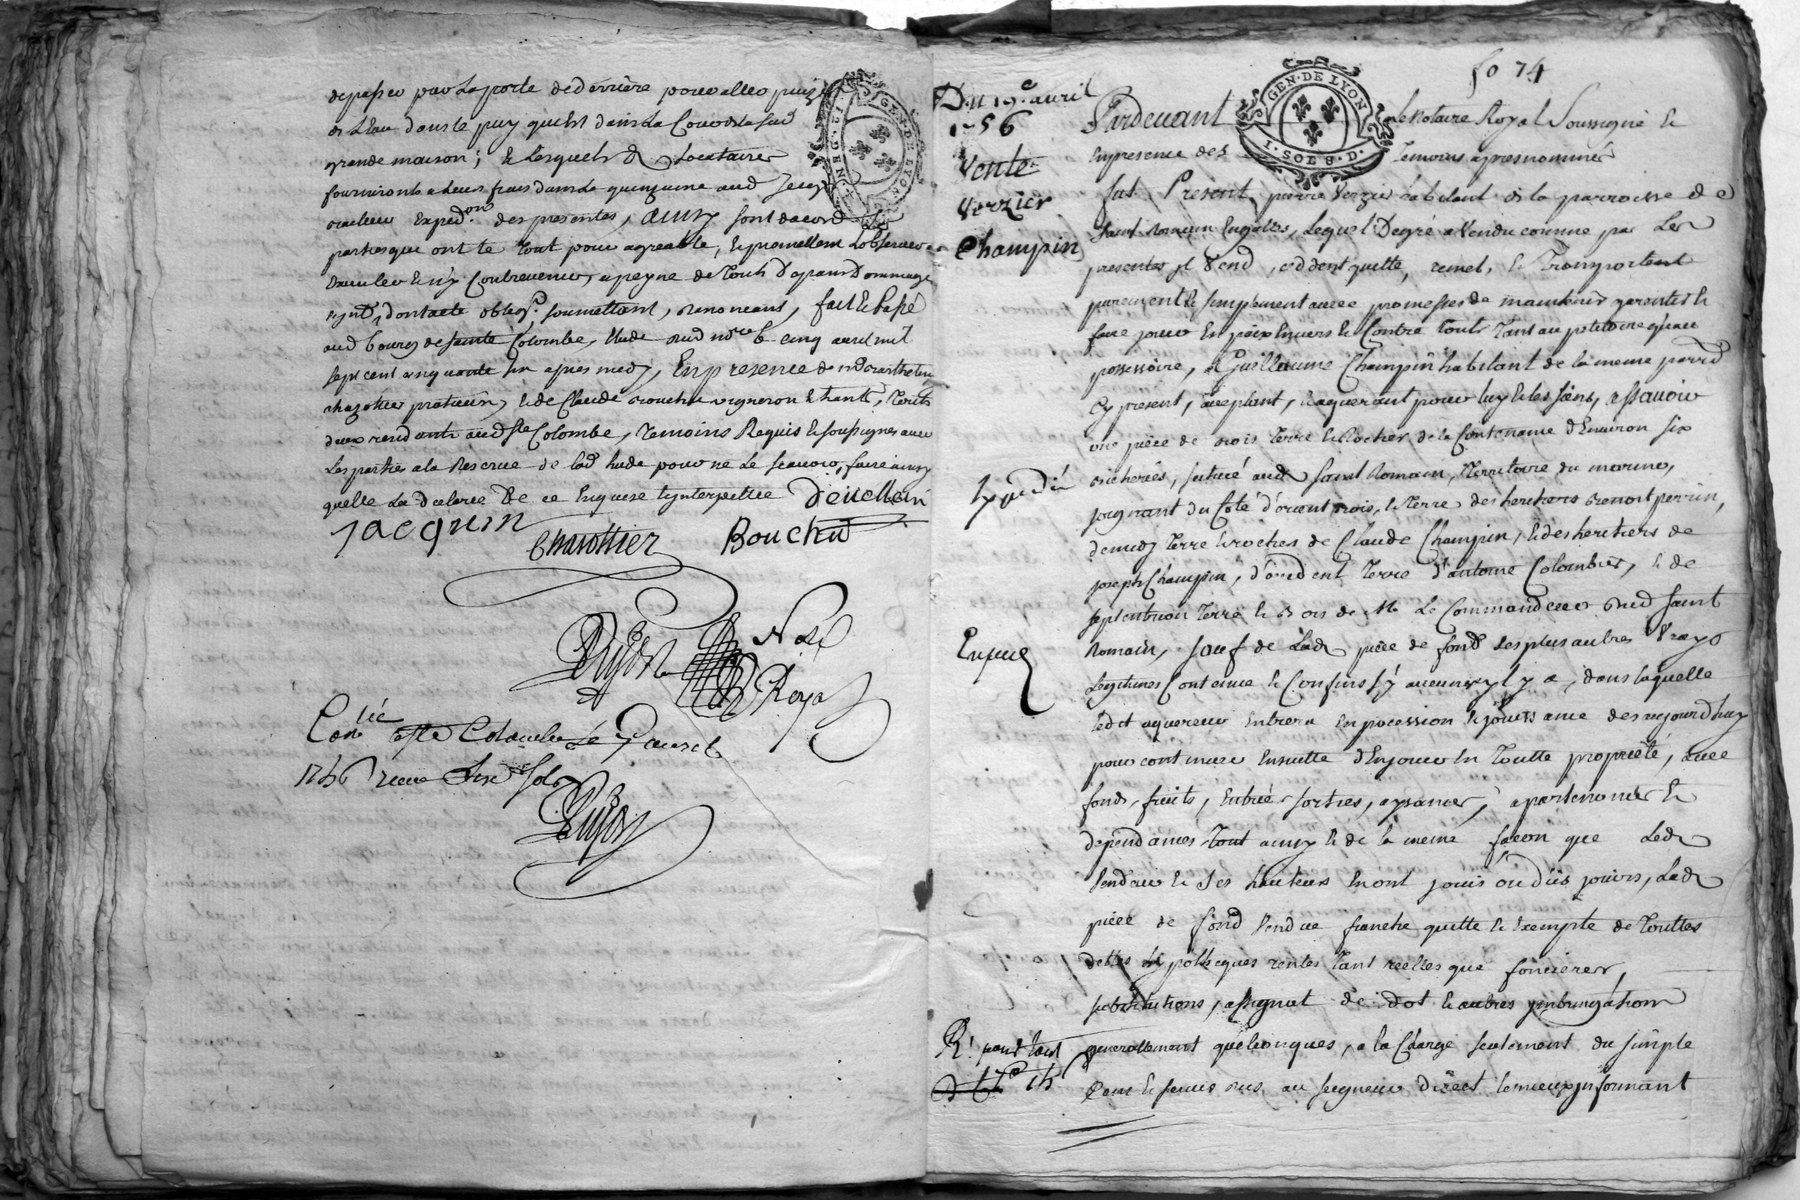 de passer par la porte de derriere pour aller puiser
de l'eau dans le puy qui est dans la Cour de lad
grande maison; & lesquels d Locataires
fourniront a leurs frais dans la quinzaine aud Jacquin
expedon des presentes, ainsy sont dacord les
parties qui ont le tout pour agreable, & promettent l'observer
executer & n'y Contrevenir, a peyne de touts depans Dommages
dont acte obligon soumettant, renoncant, fait & passé
aud bourg de sainte Colombe, Etude dud nore le cinq avril mil
sept cent cinquante six apres midy, En presence de
praticien, & de Claude vigneron & hante, touts
deux residants aud Ste Colombe, temoins Requis & soussignés avec
les parties a la Reserve de lad pour ne le scavoir faire ainsy
quelle la declaré de ce Enquise & interpellée Devellein
Jacquin
Chazottier Bouchu
Dujon Note
Royal
Conlée a Ste Colombe le 7 avril
1756 receu six sols
Dujon
fo 74
GEN. DE LYON
1. SOL 8. D.
Du 19e avril
1756
Vente
Verzier
Champin
Expedié
R. pour
Pardevant le Notaire Royal Soussigné &
En presence des temoins apres nommés
fut Present pierre Verzier habitant de la parroisse de
saint Romain Engaltes, Lequel De gré a Vendu comme par Les
presentes il Vend, cedde et quitte, remet, & Transporte
purement & simplement avec promesses de maintenir garentir &
faire jouir En paix Envers & Contre touts tant au petitoire qu'au
possessoire, a Guillaume Champin habitant de la meme parrd
Cy present, acceptant, & aquerant pour luy & les siens, assavoir
une piece de bois terre & Rocher de la Contenance d'Environ six
bicherées, situé aud saint Romain, territoire du marine,
joignant du Coté d'orient bois, & terre des heritiers benoit perrin,
de midy terre & roches de Claude Champin, & des heritiers de
joseph Champin, d'occident terre d'antoine Colombier, & de
septentrion terre & Bois de Mr Le Commandeur dud saint
Romain, sauf de Lad piece de fond les plus autres Vrays
Legitimes Contenue & Confins s'y aucuns y a, dans laquelle
ledit aquereur Entrera En pocession & jouissance des aujourdhuy
pour continuer Ensuitte d'En jouir En toutte propriété, avec
fonds, fruits, Entrées sorties, aysances, apartenances &
dependances tout ainsy & de la meme facon que Led
Vendeur & Ses hauteurs En ont jouis ou dus jouirs, Lad
piece de fond Vendue franche quitte & Exempte de touttes
dettes hypotheques rentes tant reelles que foncieres,
substitutions, assignat de dot & autres
generallement quelconques, a la Charge seulement du simple
Cens & servis dus, au seigneur direct le mieux informant